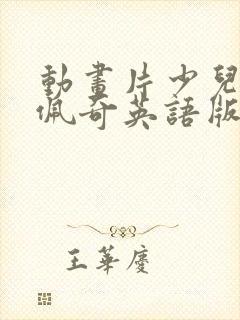 動畫片少兒
佩奇英語版
王華慶